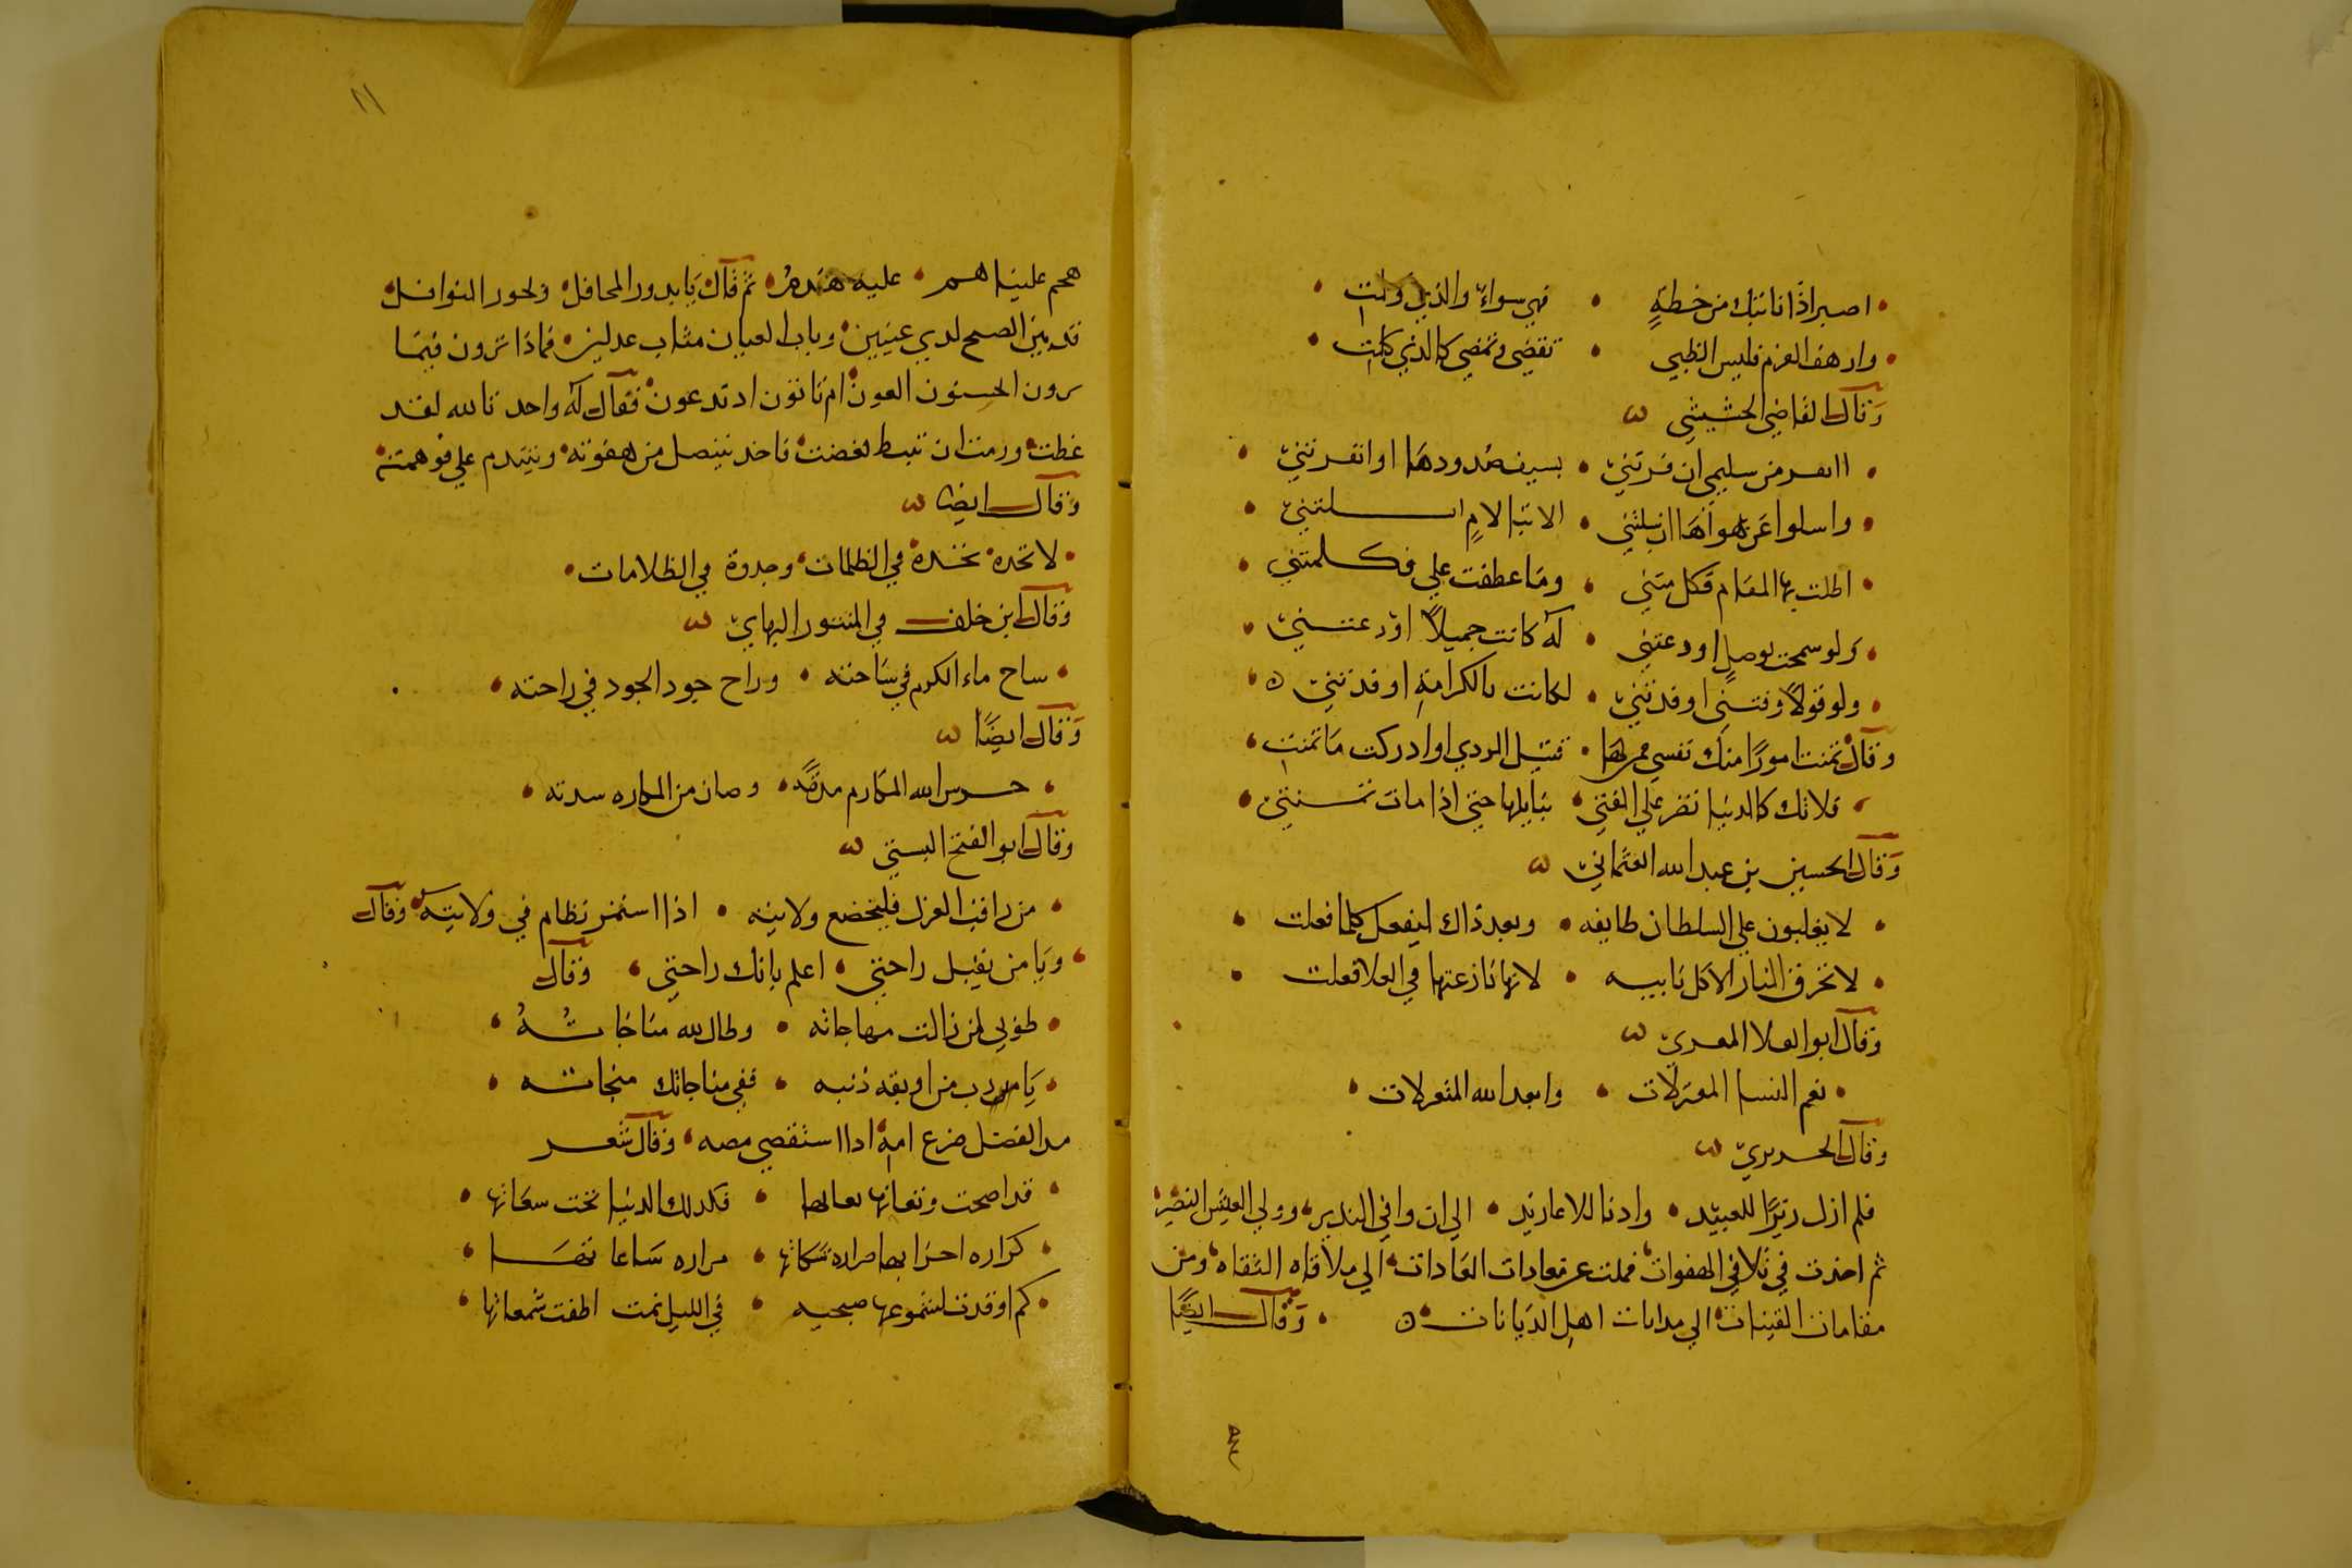 اصبر اذا نابتك من خطة • فهي سواء والذي ولت
وارهف العزم فليس الظبي • تقضي وتمضي كالذي كلت
وقال القاضي الحشيشي
من سليمي ان فرتني • بسيف صدودها او انفرتني
واسلوا عن هواها ان سلتني • الا تبا لام
اطلت بها المقام فكل متني • وما عطفت علي فكلمتني
ولو سمحت بوصل او دعتني • له كانت جميلا اودعتني
ولو قولا وفتني او فدتني • لكانت بالكرامة او فدتني
وقال تمنت امورا منك نفسي • قتيل الردي لو ادركت ما تمنت
فلاتك كالدنيا تضر علي الفتي • حتي اذا مات
وقال الحسين بن عبد الله العثماني
لا يغلبون علي السلطان طايفه • وبعد ذاك ليفعل كلما فعلت
لا تحرق النار الا كل نابيه • لانها نازعتها في العلا فعلت
وقال ابو العلا المعري
نعم النسا المعزلات • وابعد الله
وقال الحريري
فلم ازل زيرا للغيد • واذنا للاغاريد • الي ان وافي النذير، وولي العيش النضير
ثم اخذت في تلافي الهفوات فملت عن مغادات الغادات الي ملاقاه التقاه ومن
مقامات القينات الي مدانات اهل الديانات • وقال ايضا
١١
هجم علينا هم • عليه هدم • ثم قال يا بدور المحافل وبحور النوافل
قد بين الصبح لذي عينين وناب العيان مناب عدلين فماذا ترون فيما
ترون اتحسنون العون ام تاتون اذ تدعون فقال له واحد تالله لقد
غظت ورمت ان تنبط فغضت فاخذ يتنصل من هفوته ويتندم علي فوهته
وقال ايضا
لا تخده في الظلمات وجذوة في الظلامات
وقال ابن خلف في المنثور البهايي
ساح ماء الكرم في ساحته • وراح جود الجود في راحته
وقال ايضا
حرس الله المكارم • وصان من المكاره سدته
وقال ابو الفتح البستي
من راقب العزل فليخضع ولايته • اذا استمر نظام في ولايته وقال
ويا من يقبل راحتي • اعلم بانك راحتي • وقال
طوبي لمن زالت مهاجاته • وطال لله مناجاته
يا من اوبقه ذنبه • ففي مناجاتك منجاته
ضرع امه اذا استقصي مصه • وقال شعر
قد اصبحت • فكذلك الدنيا تحت
مراره ساعا
كم اوقدت لشموعها صبحيه • في الليل نمت اطفت شمعاتها